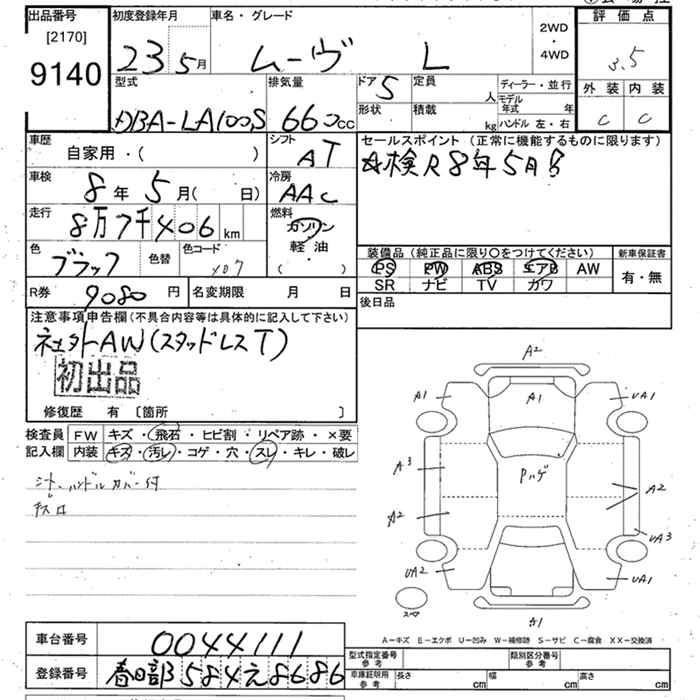 出品番号
[2170]
9140
初度登録年月
23 5月
車名・グレード
ムーヴ L
2WD
・
4WD
評価点
3.5
外装 内装
C C
型式
DBA-LA100S
排気量
660cc
ドア 5
定員 人
形状
積載 kg
ディーラー・並行
モデル年式 年
ハンドル 左・右
車歴
自家用・( )
シフト
AT
セールスポイント (正常に機能するものに限ります)
車検R8年5月
車検
8年 5月( 日)
冷房
AAC
走行
8万7千406km
燃料
ガソリン
軽油
( )
色
ブラック
色替
色コード
X07
装備品 (純正品に限り〇をつけてください)
PS PW ABS エアB AW
SR ナビ TV カワ
新車保証書
有・無
R券 9080円
名変期限 月 日
後日品
注意事項申告欄(不具合内容等は具体的に記入して下さい)
社外AW(スタッドレスT)
初出品
修復歴 有 〔箇所 〕
検査員
記入欄
FW キズ・飛石・ヒビ割・リペア跡・×要
内装 キズ・汚レ・コゲ・穴・スレ・キレ・破レ
シート、ハンドルカバー付
A2
A1 A1 UA1
A3 Pハゲ A2
A2 UA3
UA2 UA1
スペア
A1
A-キズ E-エクボ U-凹み W-補修跡 S-サビ C-腐食 XX-交換済
車台番号
0044111
登録番号
春日部584え8686
型式指定番号
参考
類別区分番号
参考
車庫証明用
参考
長さ cm
幅 cm
高さ cm